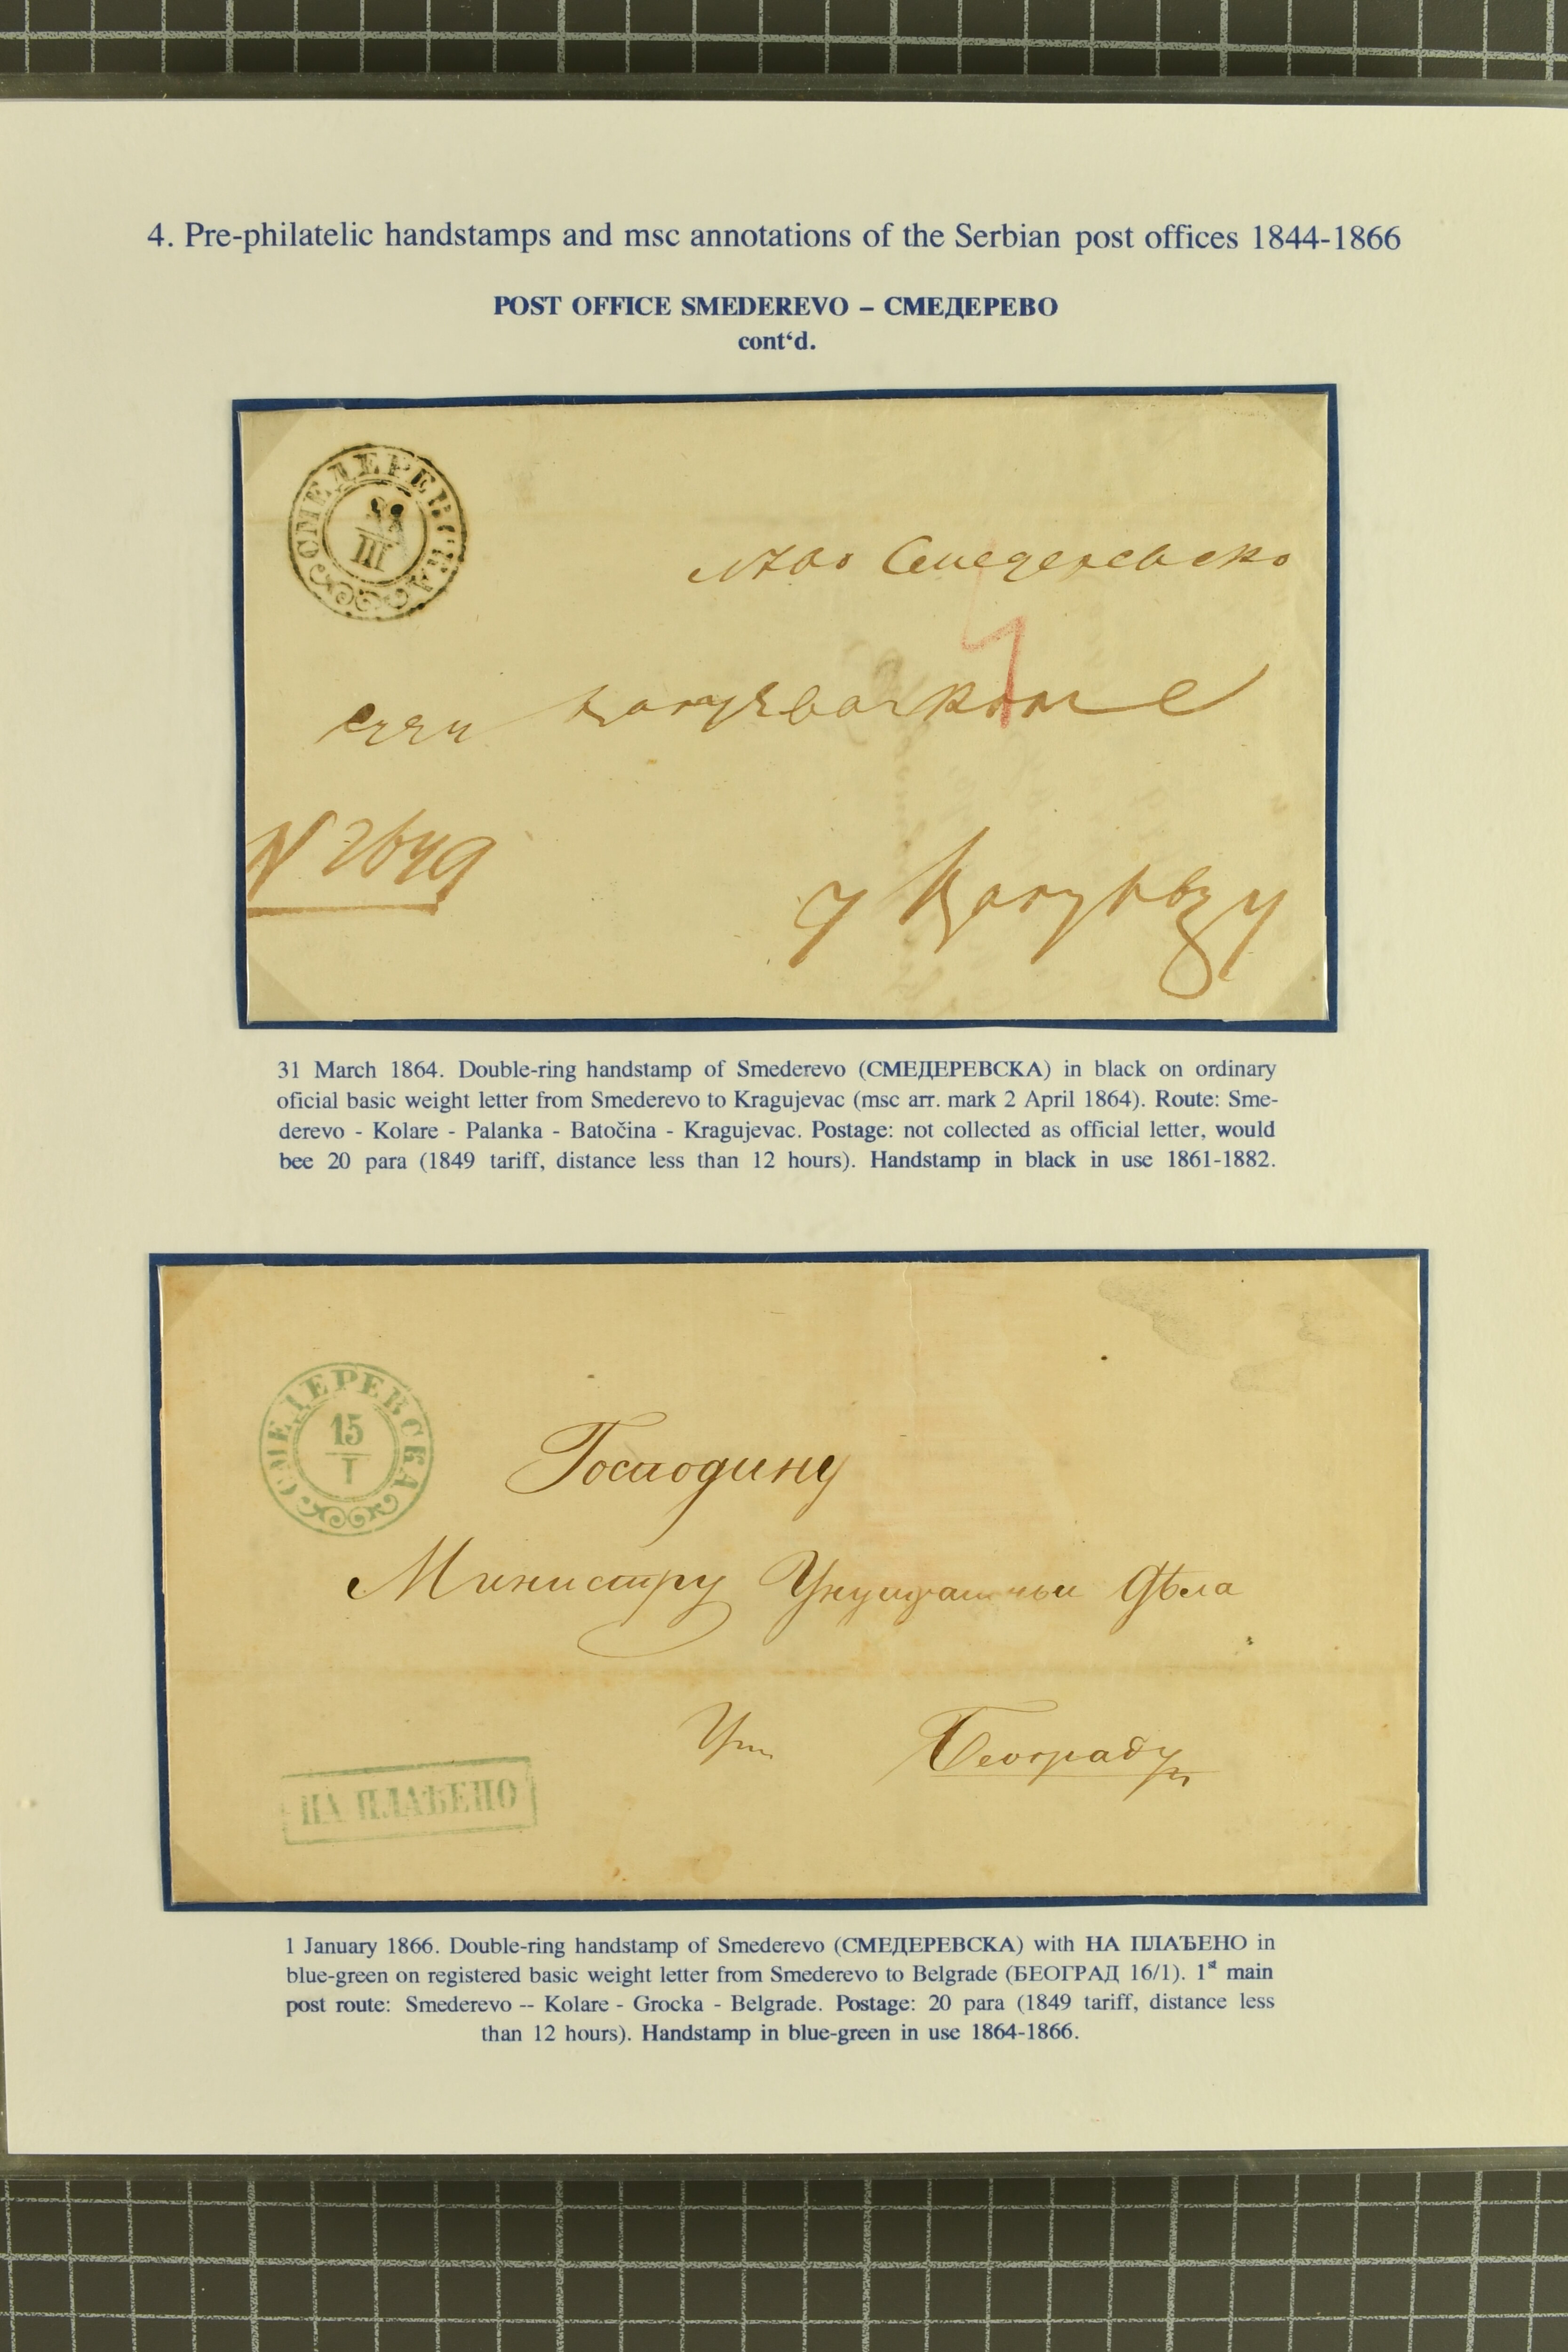 4. Pre-philatelic handstamps and msc annotations of the Serbian post offices 1844-1866
POST OFFICE SMEDEREVO – СМЕДЕРЕВО
cont‘d.
СМЕДЕРЕВСКА
III
Смедеревско
N 2649
у
31 March 1864. Double-ring handstamp of Smederevo (СМЕДЕРЕВСКА) in black on ordinary
oficial basic weight letter from Smederevo to Kragujevac (msc arr. mark 2 April 1864). Route: Sme-
derevo - Kolare - Palanka - Batočina - Kragujevac. Postage: not collected as official letter, would
bee 20 para (1849 tariff, distance less than 12 hours). Handstamp in black in use 1861-1882.
СМЕДЕРЕВСКА
15
I
Господину
Министру Дѣла
Београду
НА ПЛАЋЕНО
1 January 1866. Double-ring handstamp of Smederevo (СМЕДЕРЕВСКА) with НА ПЛАЂЕНО in
blue-green on registered basic weight letter from Smederevo to Belgrade (БЕОГРАД 16/1). 1st main
post route: Smederevo -- Kolare - Grocka - Belgrade. Postage: 20 para (1849 tariff, distance less
than 12 hours). Handstamp in blue-green in use 1864-1866.